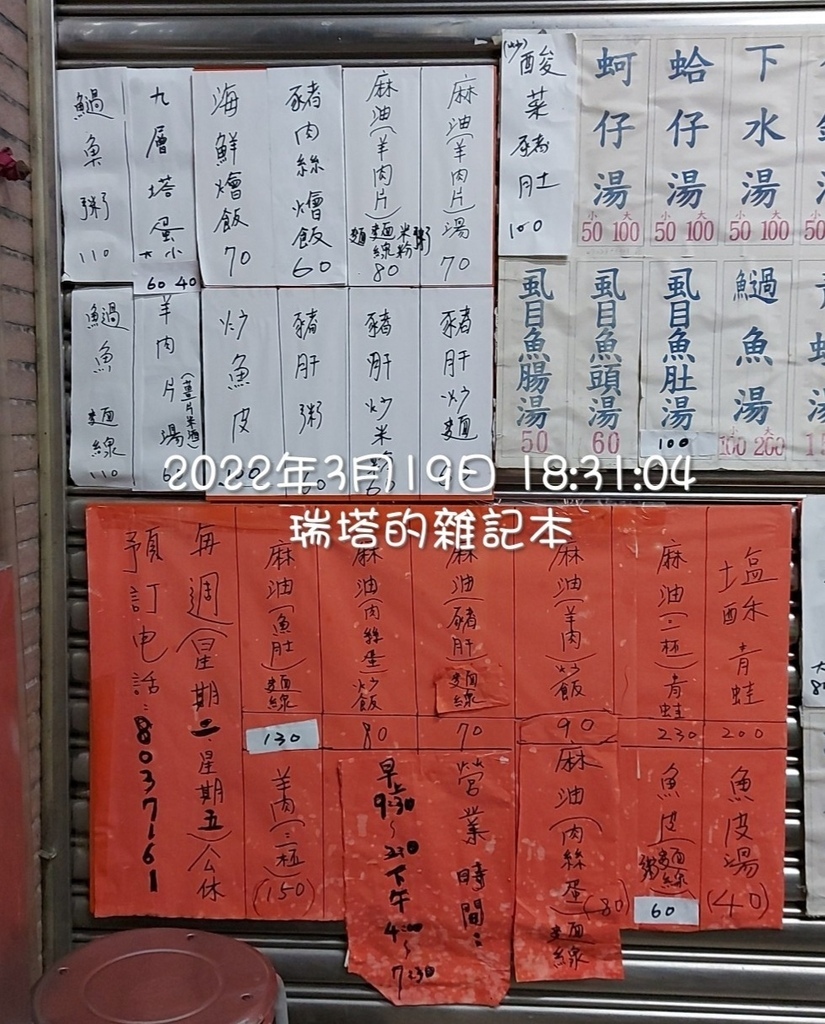 鱲魚粥 110
九層塔蛋 大小 60 40
海鮮燴飯 70
豬肉絲燴飯 60
麻油(羊肉片)麵 麵線 米粉 粥 80
麻油(羊肉片)湯 70
(炒)酸菜豬肚 100
蚵仔湯 小50 大100
蛤仔湯 小50 大100
下水湯 小50 大100
羊肉片湯(薑片米酒)
炒魚皮
豬肝粥 60
豬肝炒米粉 60
豬肝炒麵
虱目魚腸湯 50
虱目魚頭湯 60
虱目魚肚湯 100
魚湯 小100 大200
2022年3月19日 18:31:04
瑞塔的雜記本
預訂电話:8037161
每週(星期二星期五)公休
麻油(魚肚)麵線 130
麻油(肉絲蛋)炒飯 80
麻油(豬肝)麵線 70
麻油(羊肉)炒飯 90
麻油(三杯)青蛙 230
塩酥青蛙 200
羊肉(三杯)(150)
營業時間:
早上9:30~2:30下午4:00~7:30
麻油(肉絲蛋)麵線(80)
魚皮粥 麵線 60
魚皮湯(40)